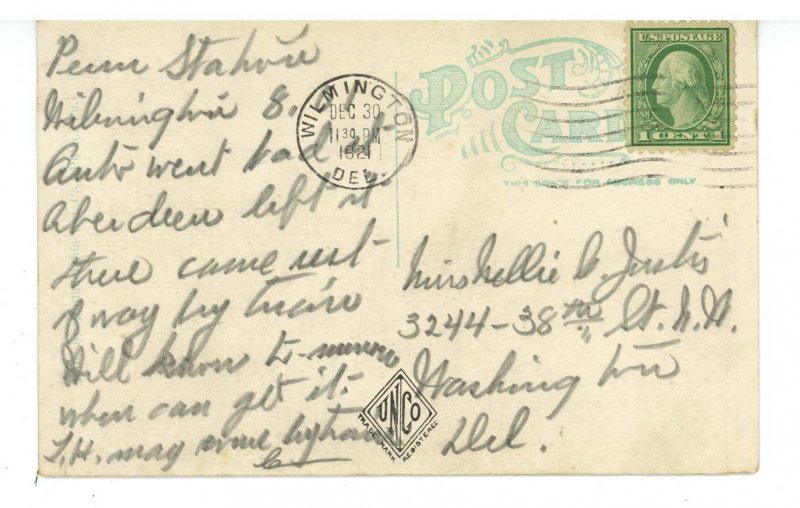 Penn Station
Wilmington 8.
Auto went bad at
Aberdeen left it
there came rest
of way by train
Will know to-morrow
when can get it.
T.H. may come by train
WILMINGTON
DEC 30
11 30 PM
1921
DEL.
POST
CARD
THIS SPACE FOR ADDRESS ONLY
U.S. POSTAGE
1 CENT 1
Miss Nellie C. Justis
3244-38th St. N.W.
Washington
Del.
UNCO
TRADE MARK REGISTERED